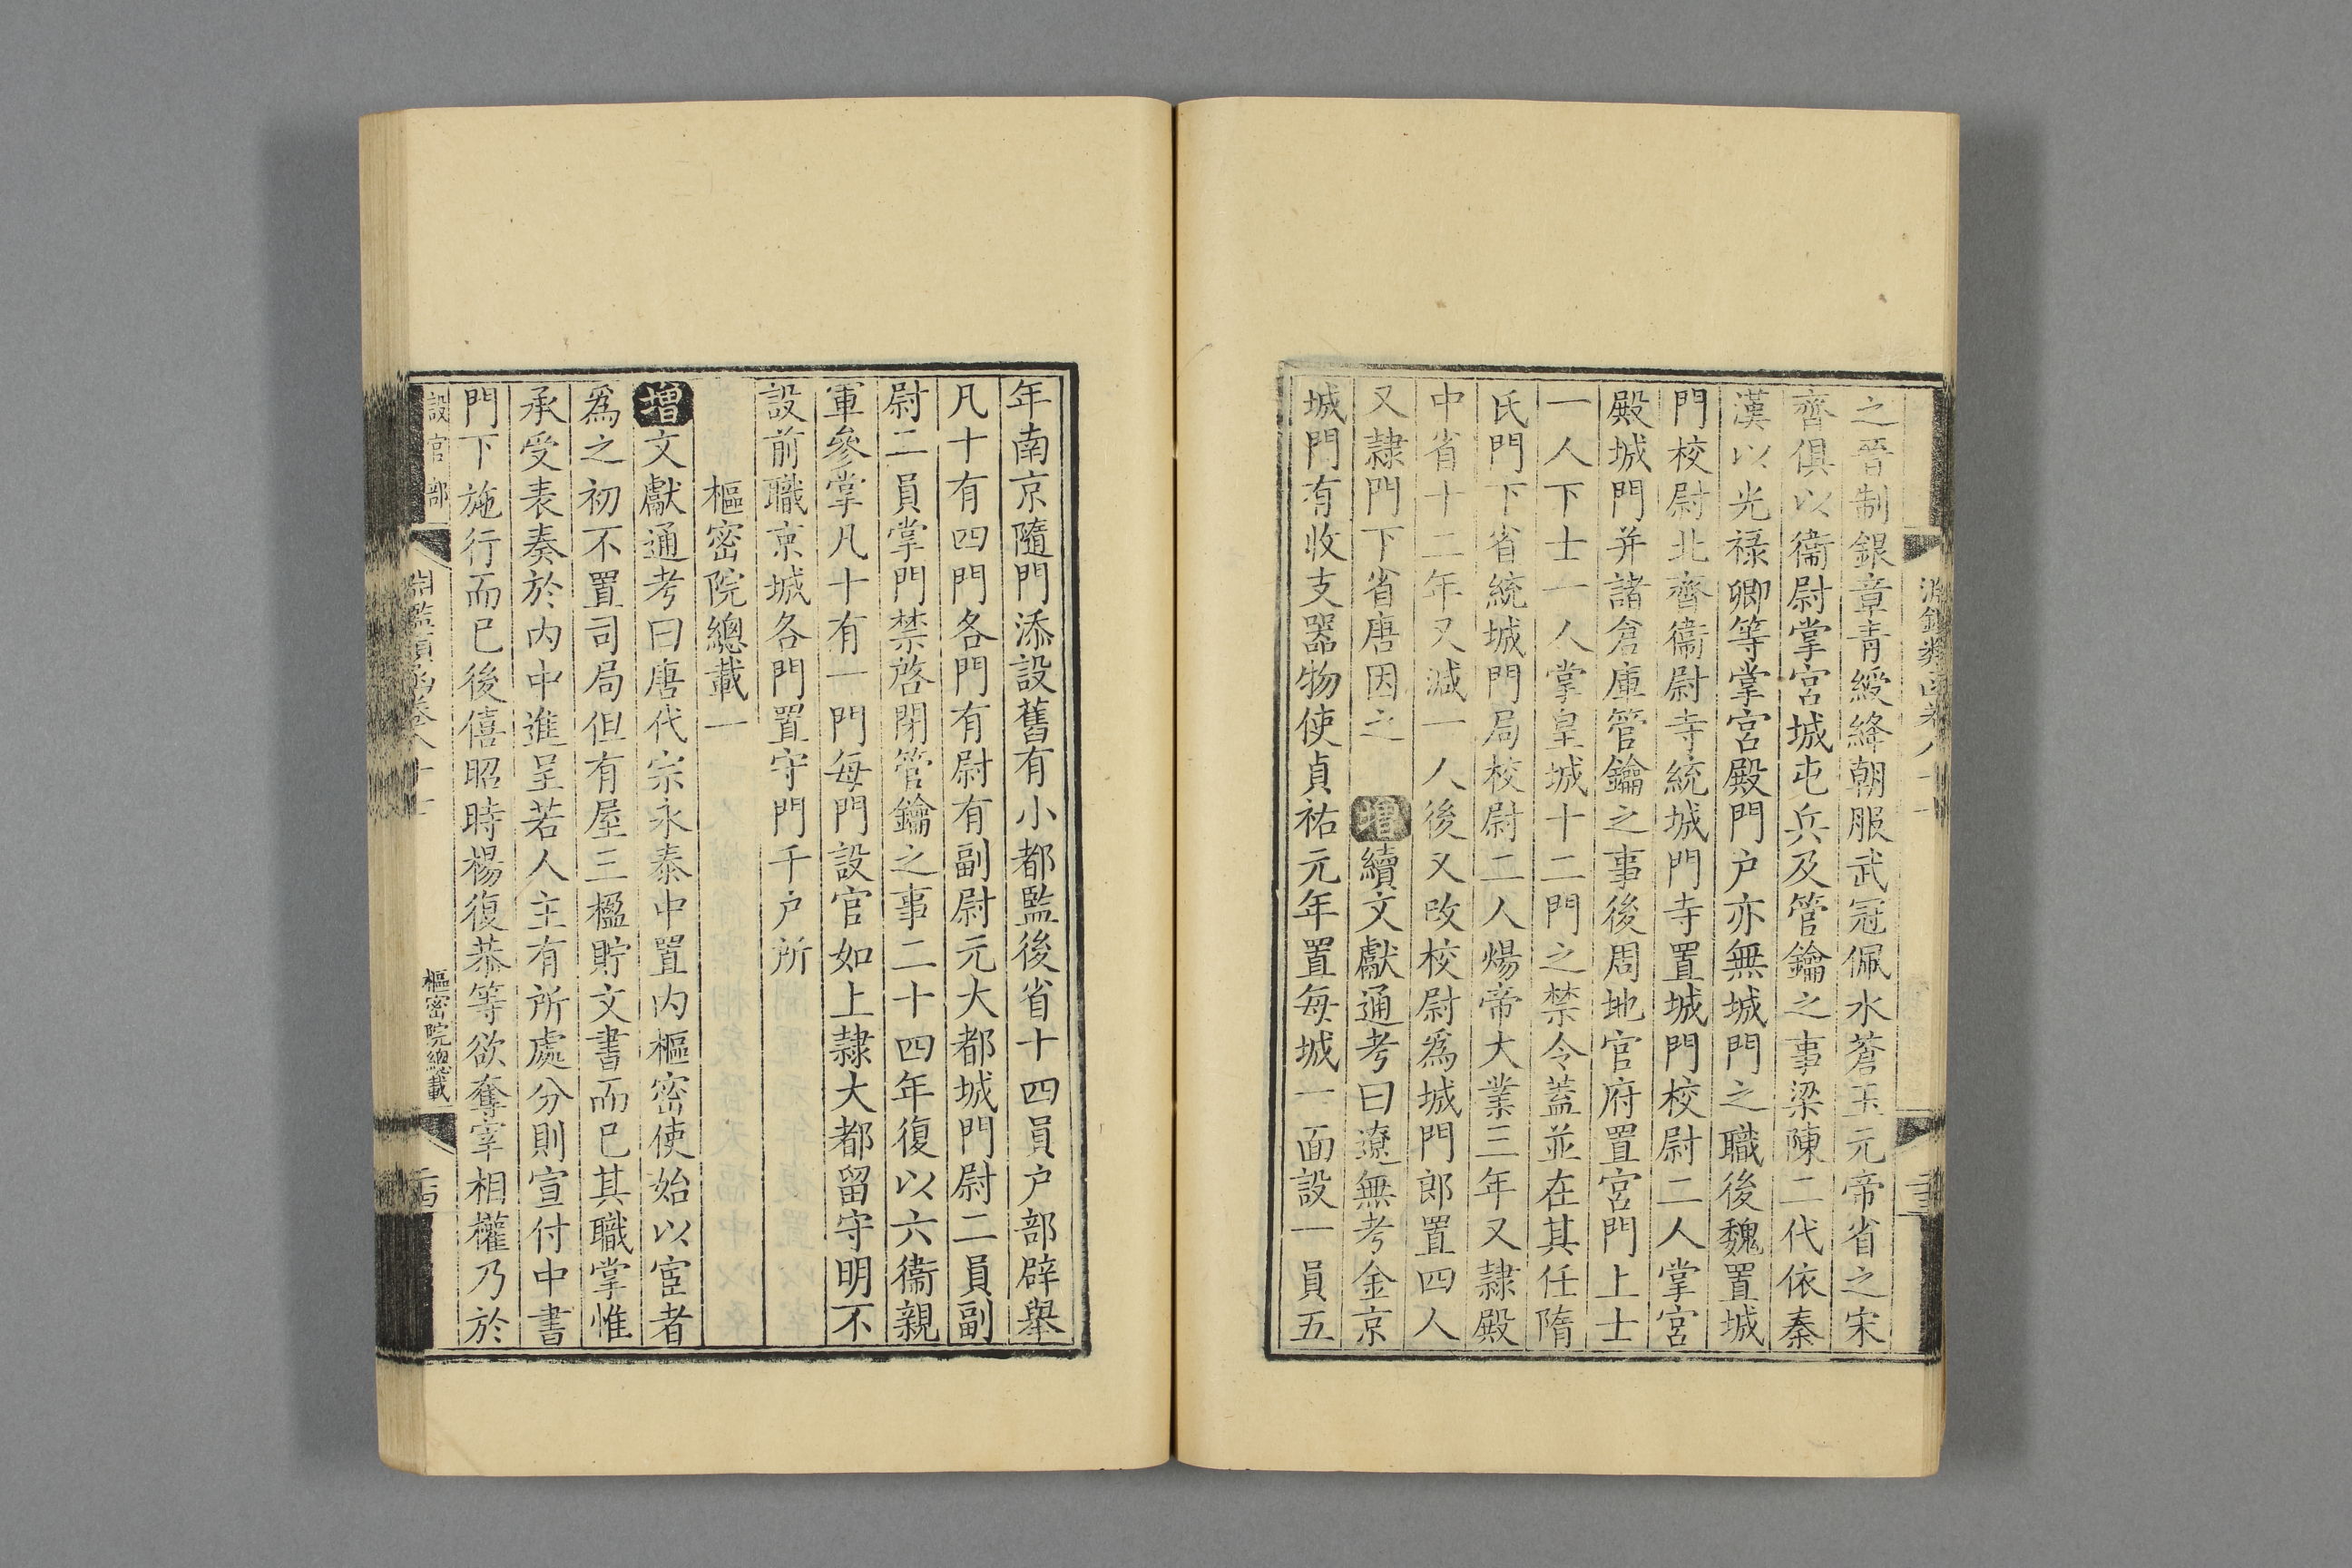 之晉制銀章青綬絳朝服武冠佩水蒼玉元帝省之宋
齊俱以衞尉掌宮城屯兵及管鑰之事梁陳二代依秦
漢以光祿卿等掌宮殿門户亦無城門之職後魏置城
門校尉北齊衞尉寺統城門寺置城門校尉二人掌宮
殿城門并諸倉庫管鑰之事後周地官府置宮門上士
一人下士一人掌皇城十二門之禁令蓋並在其任隋
氏門下省統城門局校尉二人煬帝大業三年又隷殿
中省十二年又減一人後又改校尉爲城門郎置四人
又隷門下省唐因之 增續文獻通考曰遼無考金京
城門有收支器物使貞祐元年置每城一面設一員五
年南京隨門添設舊有小都監後省十四員户部辟舉
凡十有四門各門有尉有副尉元大都城門尉二員副
尉二員掌門禁啓閉管鑰之事二十四年復以六衞親
軍參掌凡十有一門每門設官如上隷大都留守明不
設前職京城各門置守門千户所
樞密院總載一
增文獻通考曰唐代宗永泰中置内樞密使始以宦者
爲之初不置司局但有屋三楹貯文書而已其職掌惟
承受表奏於内中進呈若人主有所處分則宣付中書
門下施行而已後僖昭時楊復恭等欲奪宰相權乃於
設官部
樞密院總載